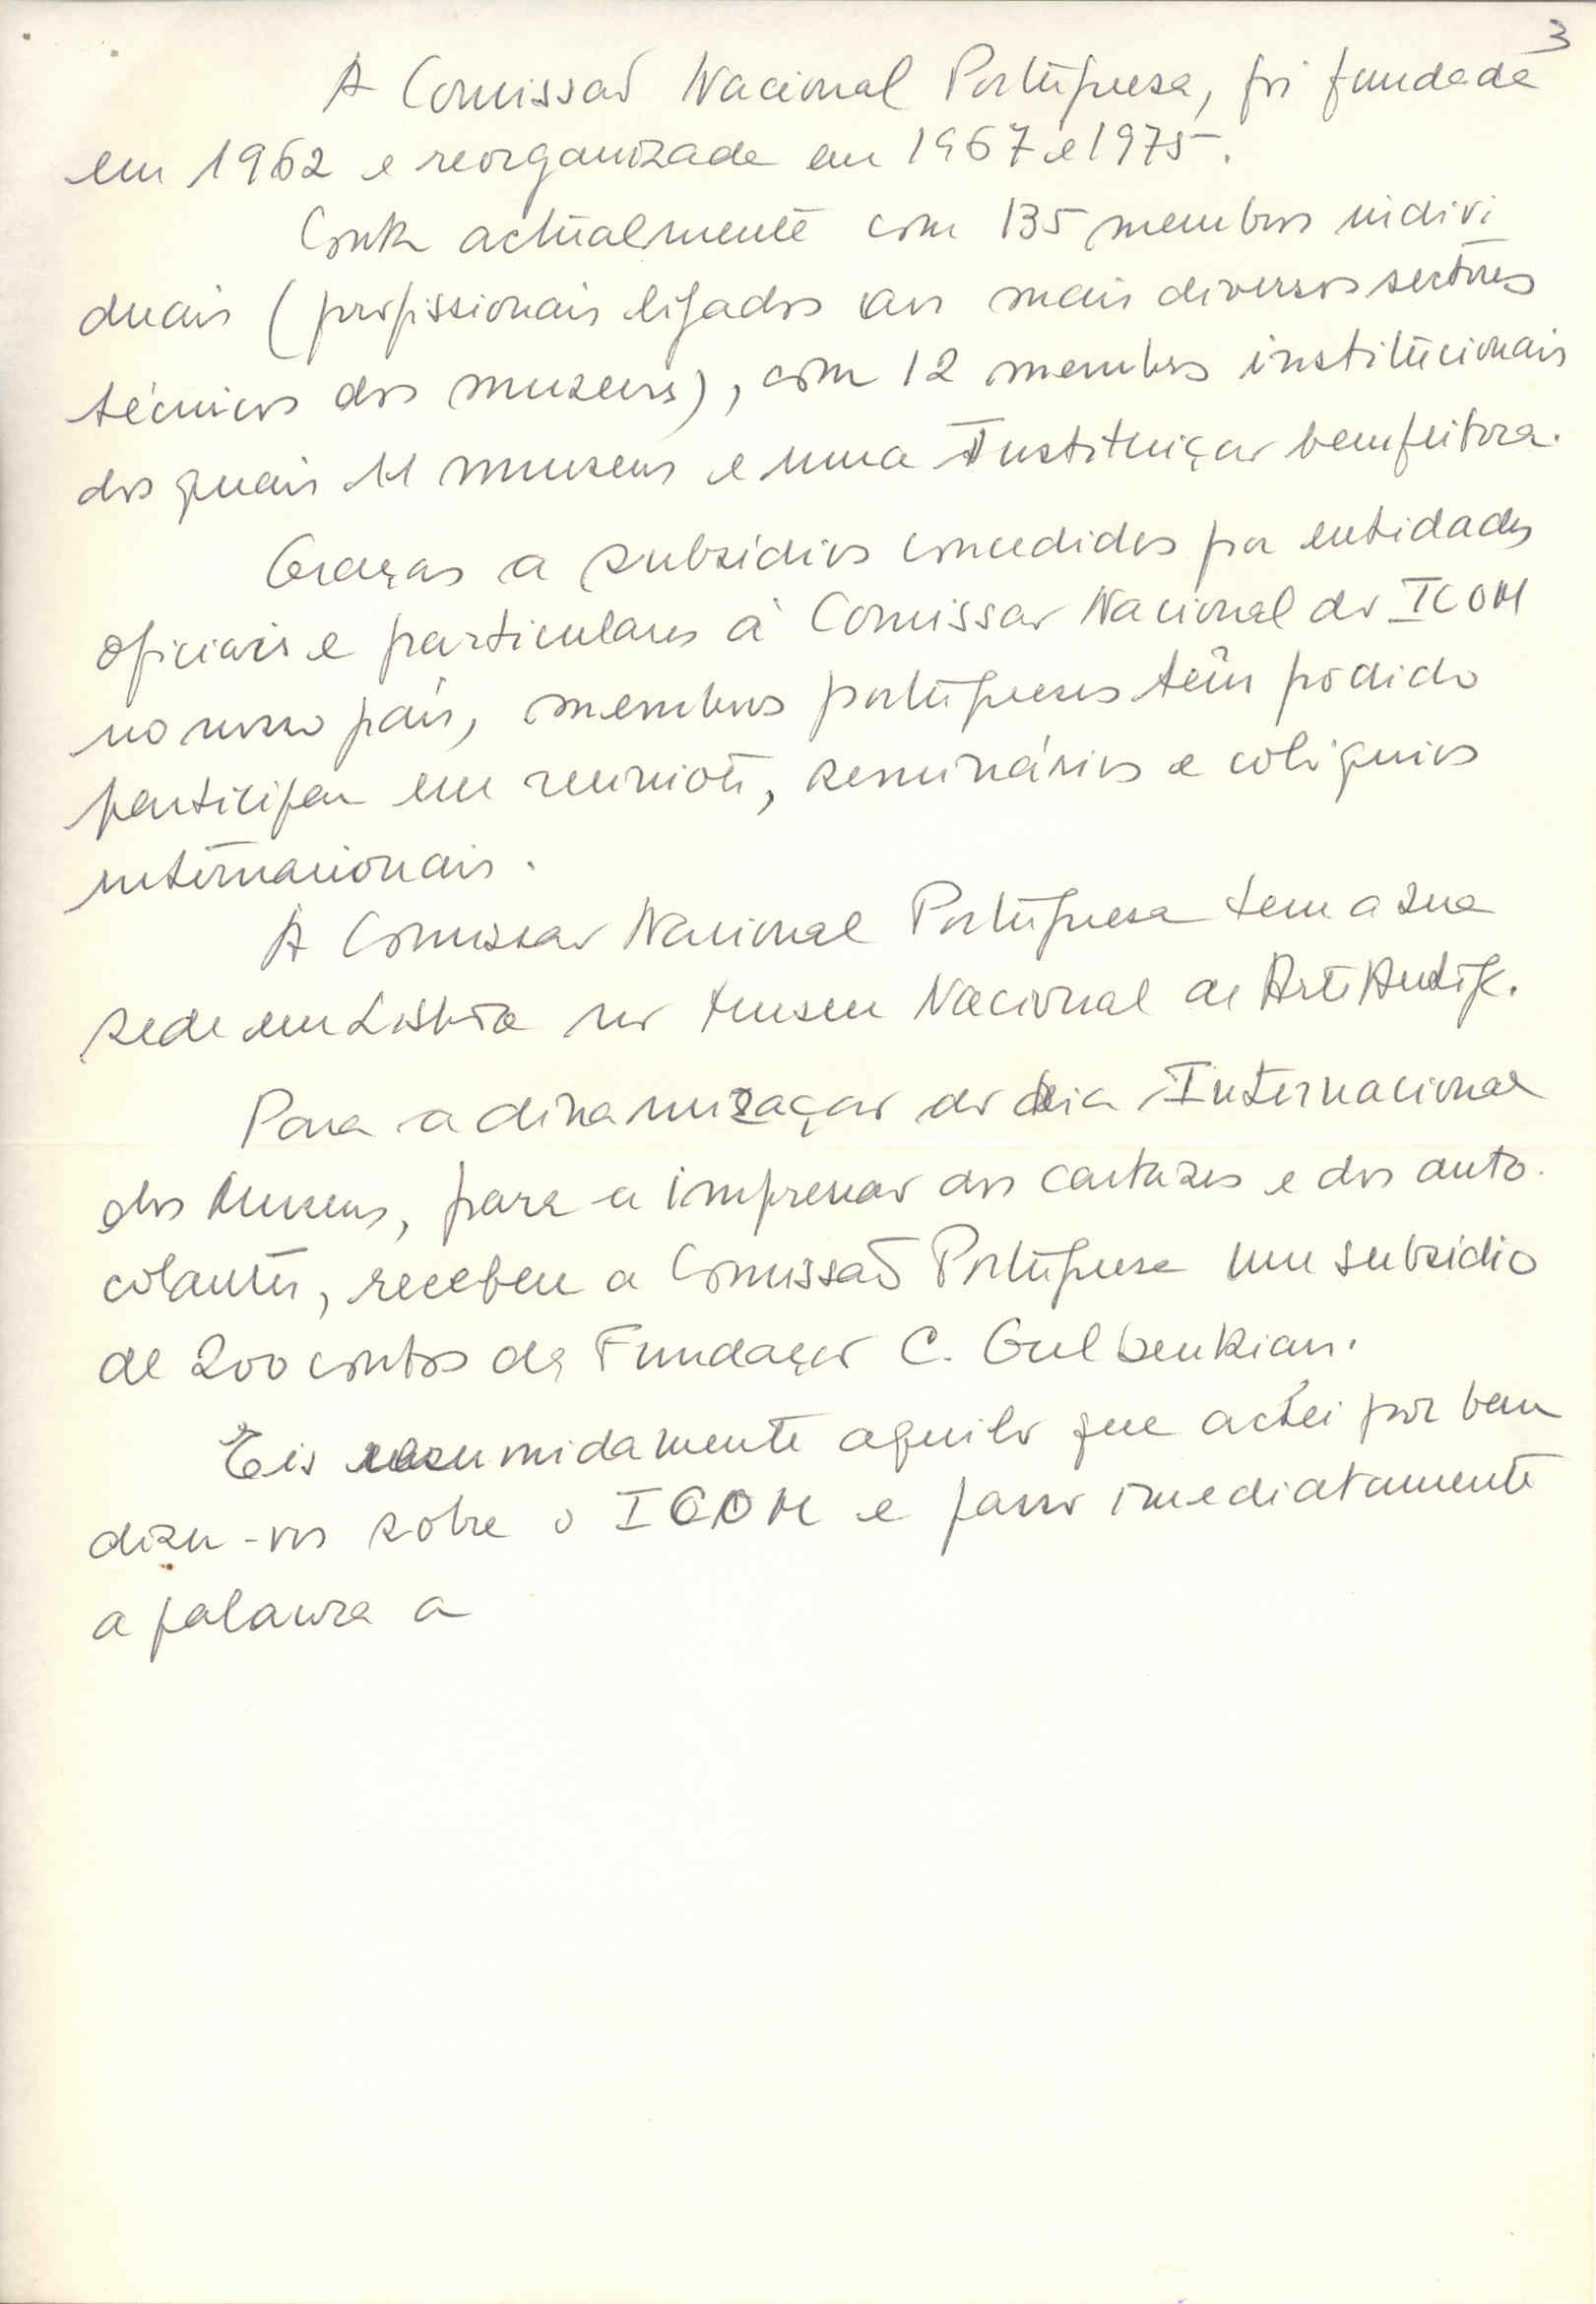 3
A Comissão Nacional Portuguesa, foi fundada
em 1962 e reorganizada em 1967 e 1975.
Conta actualmente com 135 membros indivi
duais (profissionais ligados aos mais diversos sectores
técnicos dos museus), com 12 membros institucionais
dos quais 11 museus e uma Instituição benfeitora.
Graças a subsídios concedidos por entidades
oficiais e particulares à Comissão Nacional do ICOM
no nosso país, membros portugueses têm podido
participar em reuniões, seminários e colóquios
internacionais.
A Comissão Nacional Portuguesa tem a sua
sede em Lisboa no Museu Nacional de Arte Antiga.
Para a dinamização do dia Internacional
dos Museus, para a impressão dos cartazes e dos auto-
colantes, recebeu a Comissão Portuguesa um subsídio
de 200 contos da Fundação C. Gulbenkian.
Eis resumidamente aquilo que achei por bem
dizer-vos sobre o ICOM e passo imediatamente
a palavra a